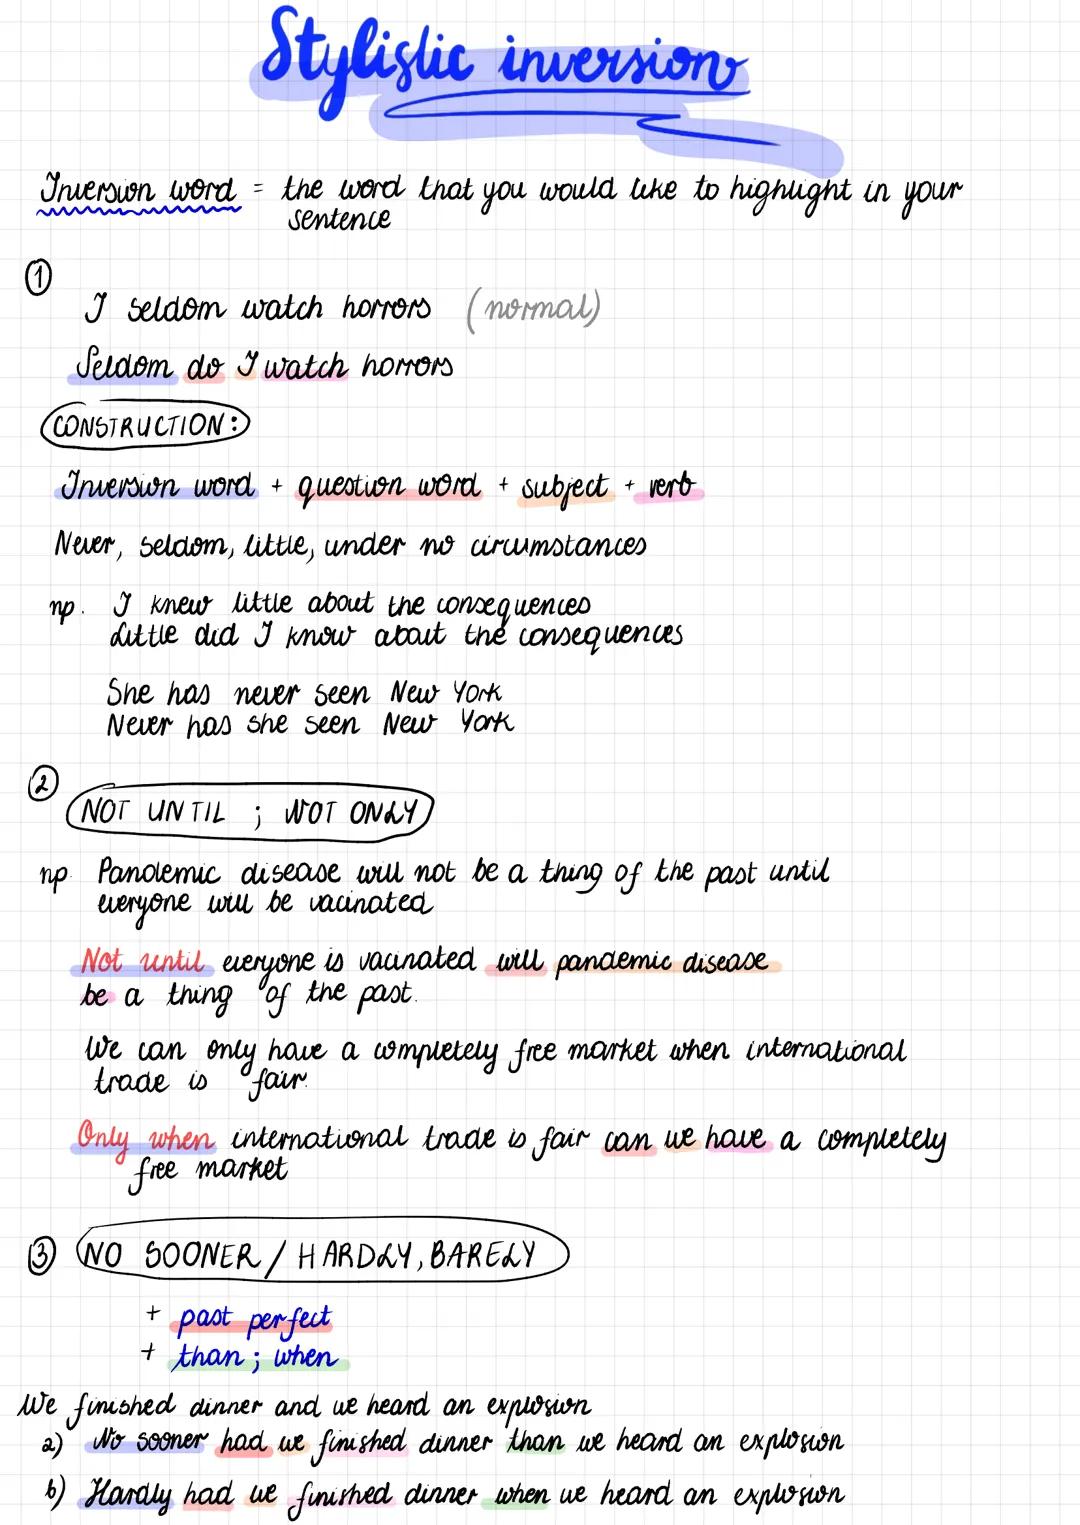 Stylistic inversion
Inversion word = the word that you would like to highlight in your
sentence
1
I seldom watch horrors (normal)
Seldom do I watch horrors
CONSTRUCTION:
Inversion word + question word + subject + verb
Never, seldom, little, under no circumstances
np. I knew little about the consequences
Little did I know about the consequences
She has never seen New York
Never has she seen New York
2
NOT UNTIL ; NOT ONLY
np. Pandemic disease will not be a thing of the past until
everyone will be vacinated
Not until everyone is vacinated will pandemic disease
be a thing of the past.
We can only have a completely free market when international
trade is fair.
Only when international trade is fair can we have a completely
free market
3 NO SOONER / HARDLY, BARELY
+ past perfect
+ than ; when
We finished dinner and we heard an explosion
a) No sooner had we finished dinner than we heard an explosion
b) Hardly had we finished dinner when we heard an explosion